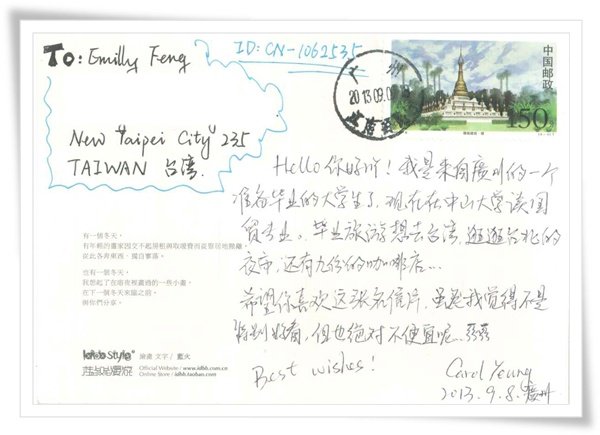 To: Emilly Feng
New "Taipei City" 235
TAIWAN 台湾.
ID: CN-1062535
广州
2013.09.0
中国邮政
150分
Hello 你好听！我是来自廣州的一个
准备毕业的大学生了，现在在中山大学读国
贸专业。毕业旅游想去台湾，逛逛台北的
夜市，还有九份的咖啡店...
希望你喜欢这张名信片，虽然我觉得不是
特别好看，但也绝对不便宜呢...
Best wishes!
Carol Yeung
2013.9.8. 廣州
有一個冬天，
有年輕的畫家因交不起房租與取暖費而從寄居地搬離，
從此各奔東西，獨自寥落。
也有一個冬天，
我想起了在宿夜裡畫過的一些小畫，
在下一個冬天來臨之前，
與你們分享。
Style
繪畫 文字 / 藍火
Official Website / www.idbb.com.cn
Online Store / idbb.taobao.com